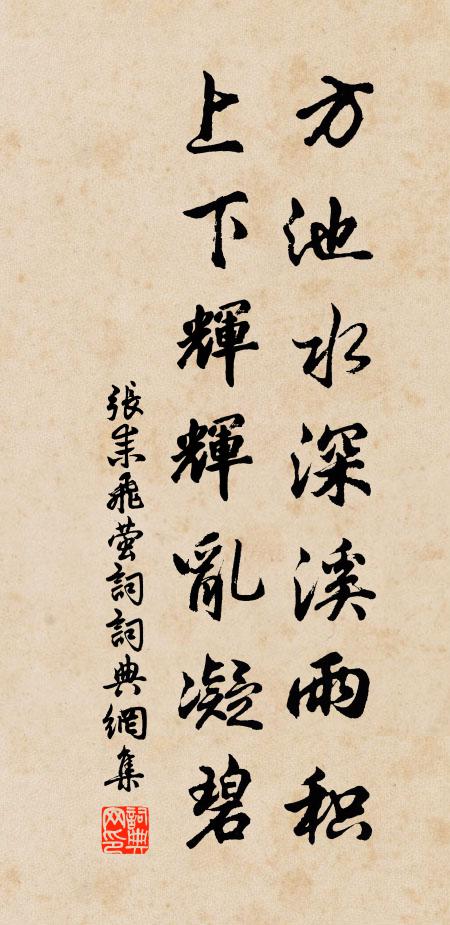 方池水深溪雨积
上下輝輝亂凝碧
張耒飛螢詞詞典網集
詞典網印